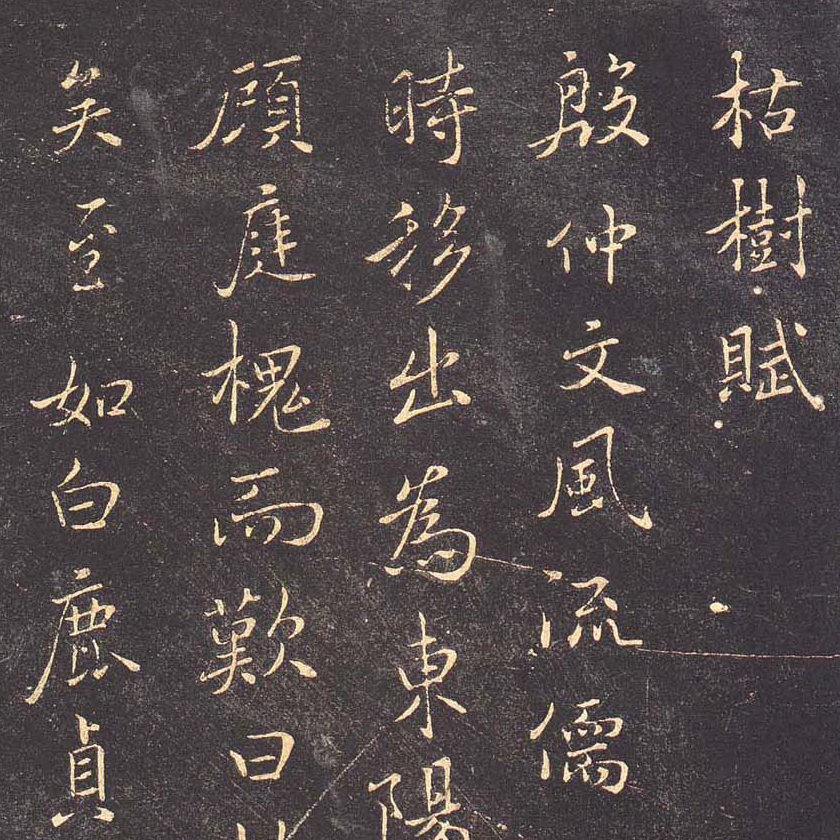 枯樹賦
殷仲文風流儒
時移出為東陽
顧庭槐而歎曰
矣至如白鹿貞